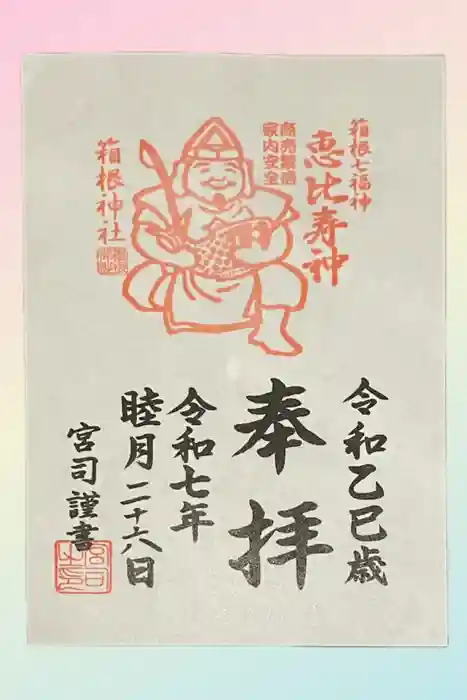 箱根七福神
恵比寿神
商売繁盛
家内安全
箱根神社
令和乙巳歳
奉拝
令和七年
睦月二十六日
宮司謹書
宮司之印